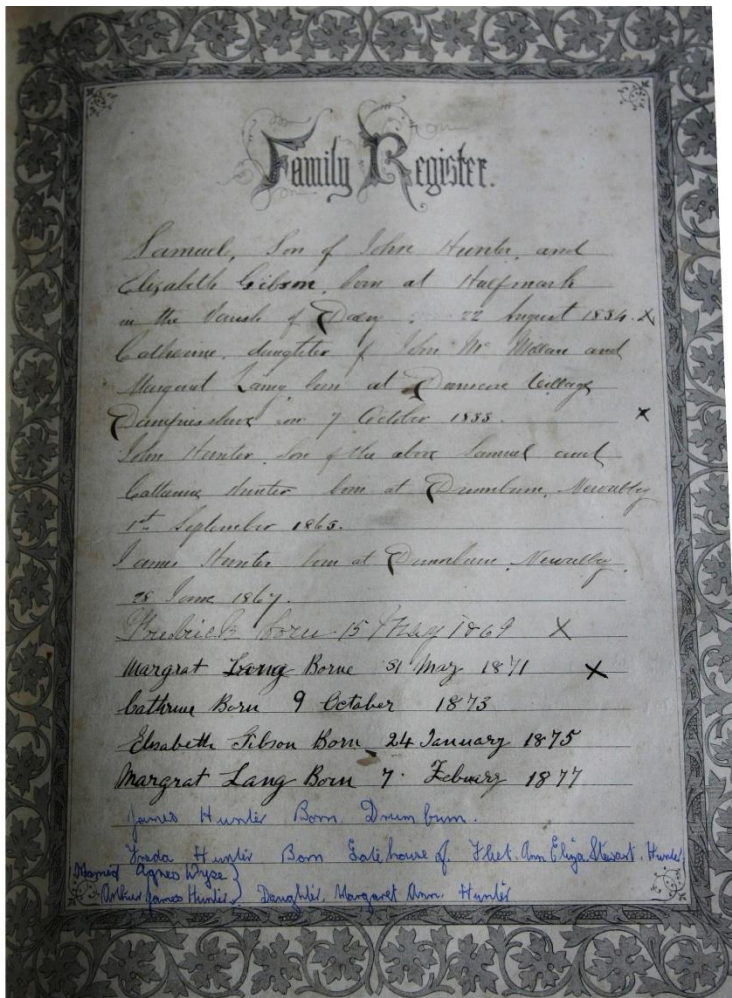 Family Register.
Samuel, Son of John Hunter, and
Elizabeth Gibson, born at Halfmark
in the Parish of Dalry. 22 August 1834. X
Catherine, daughter of John McMillan and
Margaret Laing born at Dunscore Village
Dumfriesshire on 7 October 1838. X
John Hunter, Son of the above Samuel and
Catherine Hunter born at Drumburn, Newabbey
1st September 1865.
James Hunter born at Drumburn, Newabbey.
28 June 1867.
Fredrick Born 15 May 1869 X
Margrat Borne 31 May 1871 X
Cathrine Born 9 October 1873
Elisabeth Gibson Born 24 January 1875
Margrat Lang Born 7. Febuery 1877
James Hunter Born, Drumburn.
Freda Hunter Born Gatehouse of Fleet. Ann Eliza Stewart. Hunter.
Married Agnes Wyse}
Arthur James Hunter} Daughter, Margaret Ann. Hunter